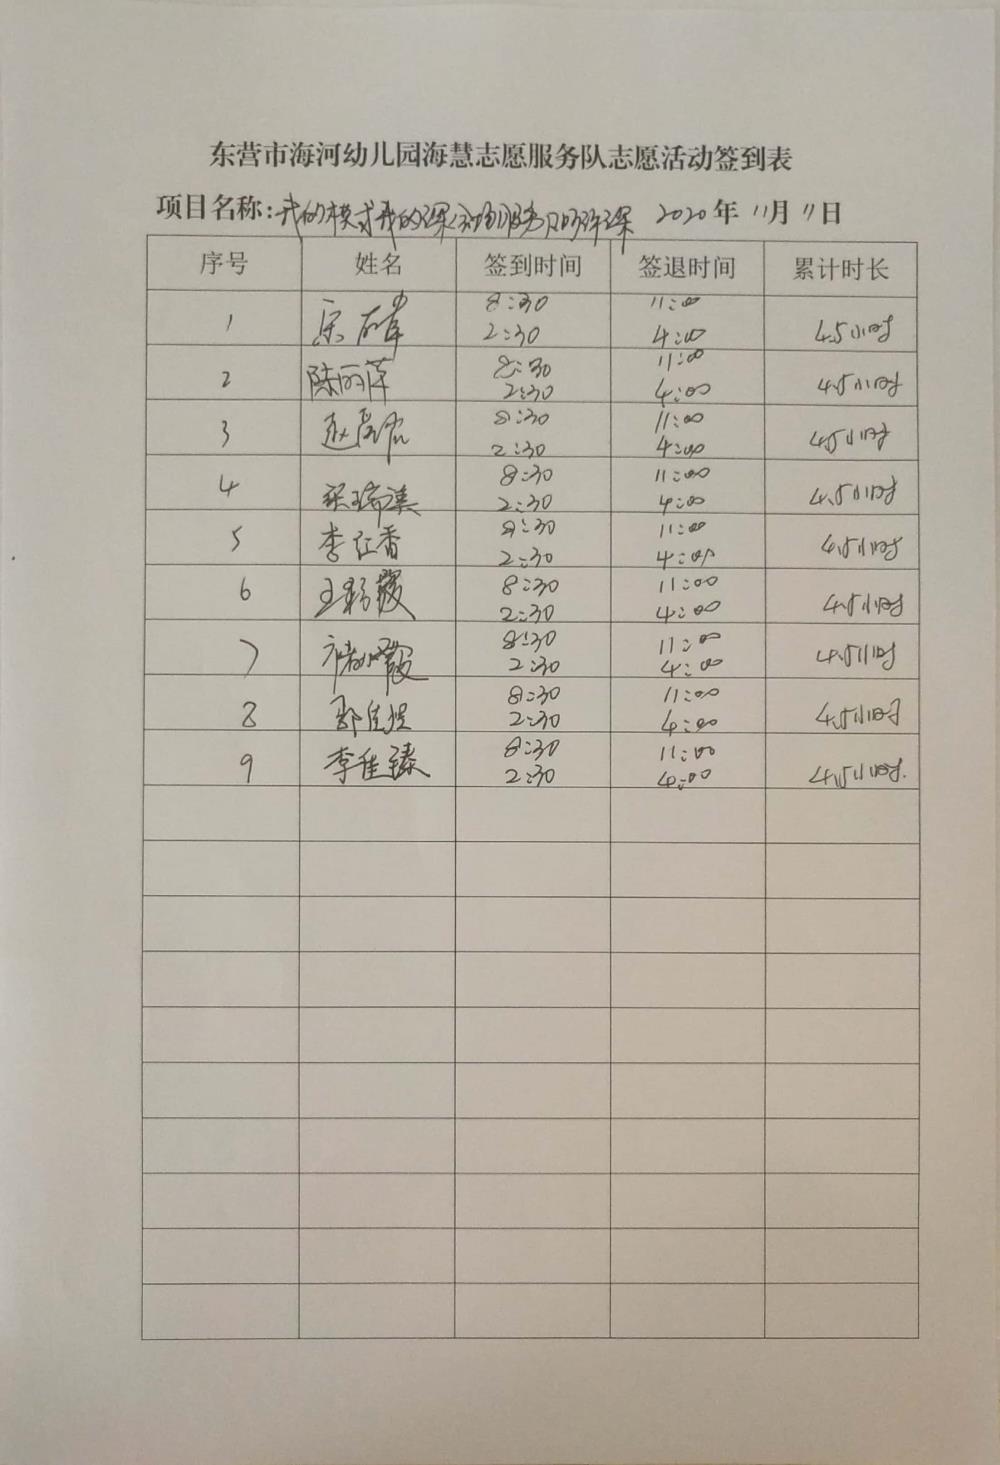 东营市海河幼儿园海慧志愿服务队志愿活动签到表
项目名称:我的模式我的课 2020年11月11日
序号 姓名 签到时间 签退时间 累计时长
1 8:30 11:00
2:30 4:00 4.5小时
2 陈丽萍 8:30 11:00
2:30 4:00 4.5小时
3 赵 8:30 11:00
2:30 4:00 4.5小时
4 8:30 11:00
2:30 4:00 4.5小时
5 李红香 8:30 11:00
2:30 4:00 4.5小时
6 王彩霞 8:30 11:00
2:30 4:00 4.5小时
7 8:30 11:00
2:30 4:00 4.5小时
8 8:30 11:00
2:30 4:00 4.5小时
9 李佳臻 8:30 11:00
2:30 4:00 4.5小时.